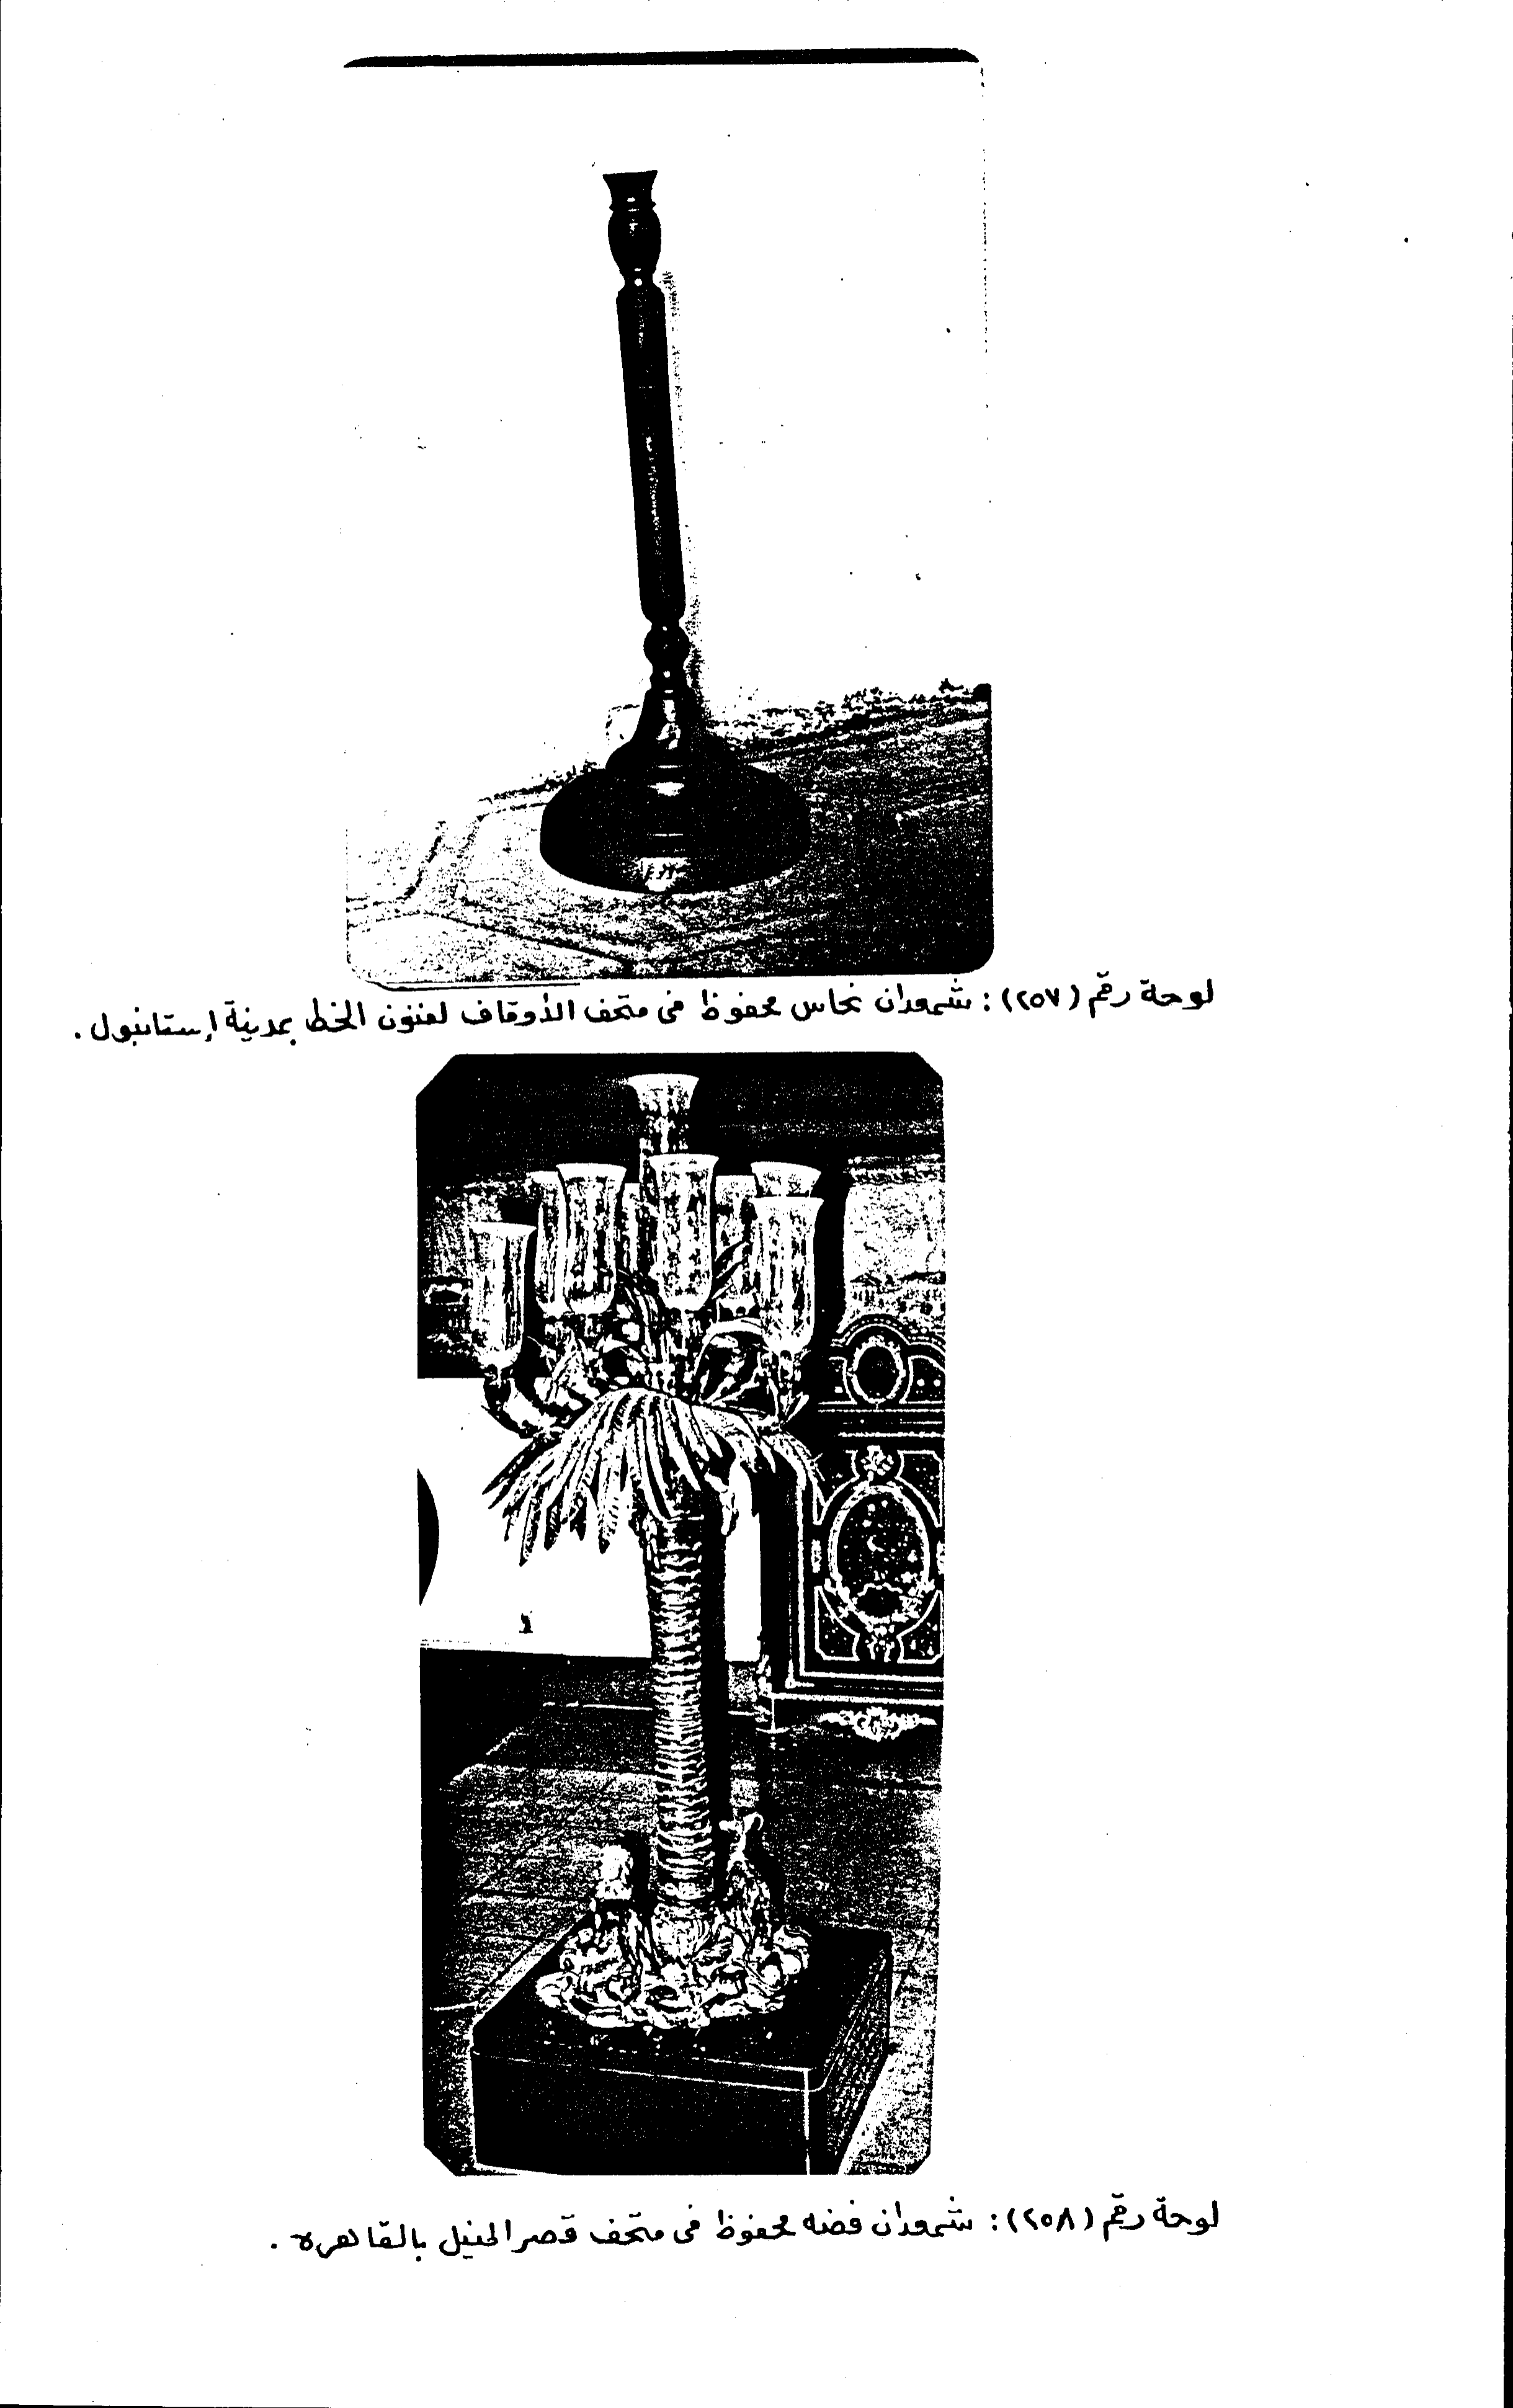 لوحة رقم (٢٥٧) : شمعدان نحاس محفوظ فى متحف الأوقاف لفنون الخط بمدينة إستانبول .
لوحة رقم (٢٥٨) : شمعدان فضه محفوظ فى متحف قصر المنيل بالقاهره .